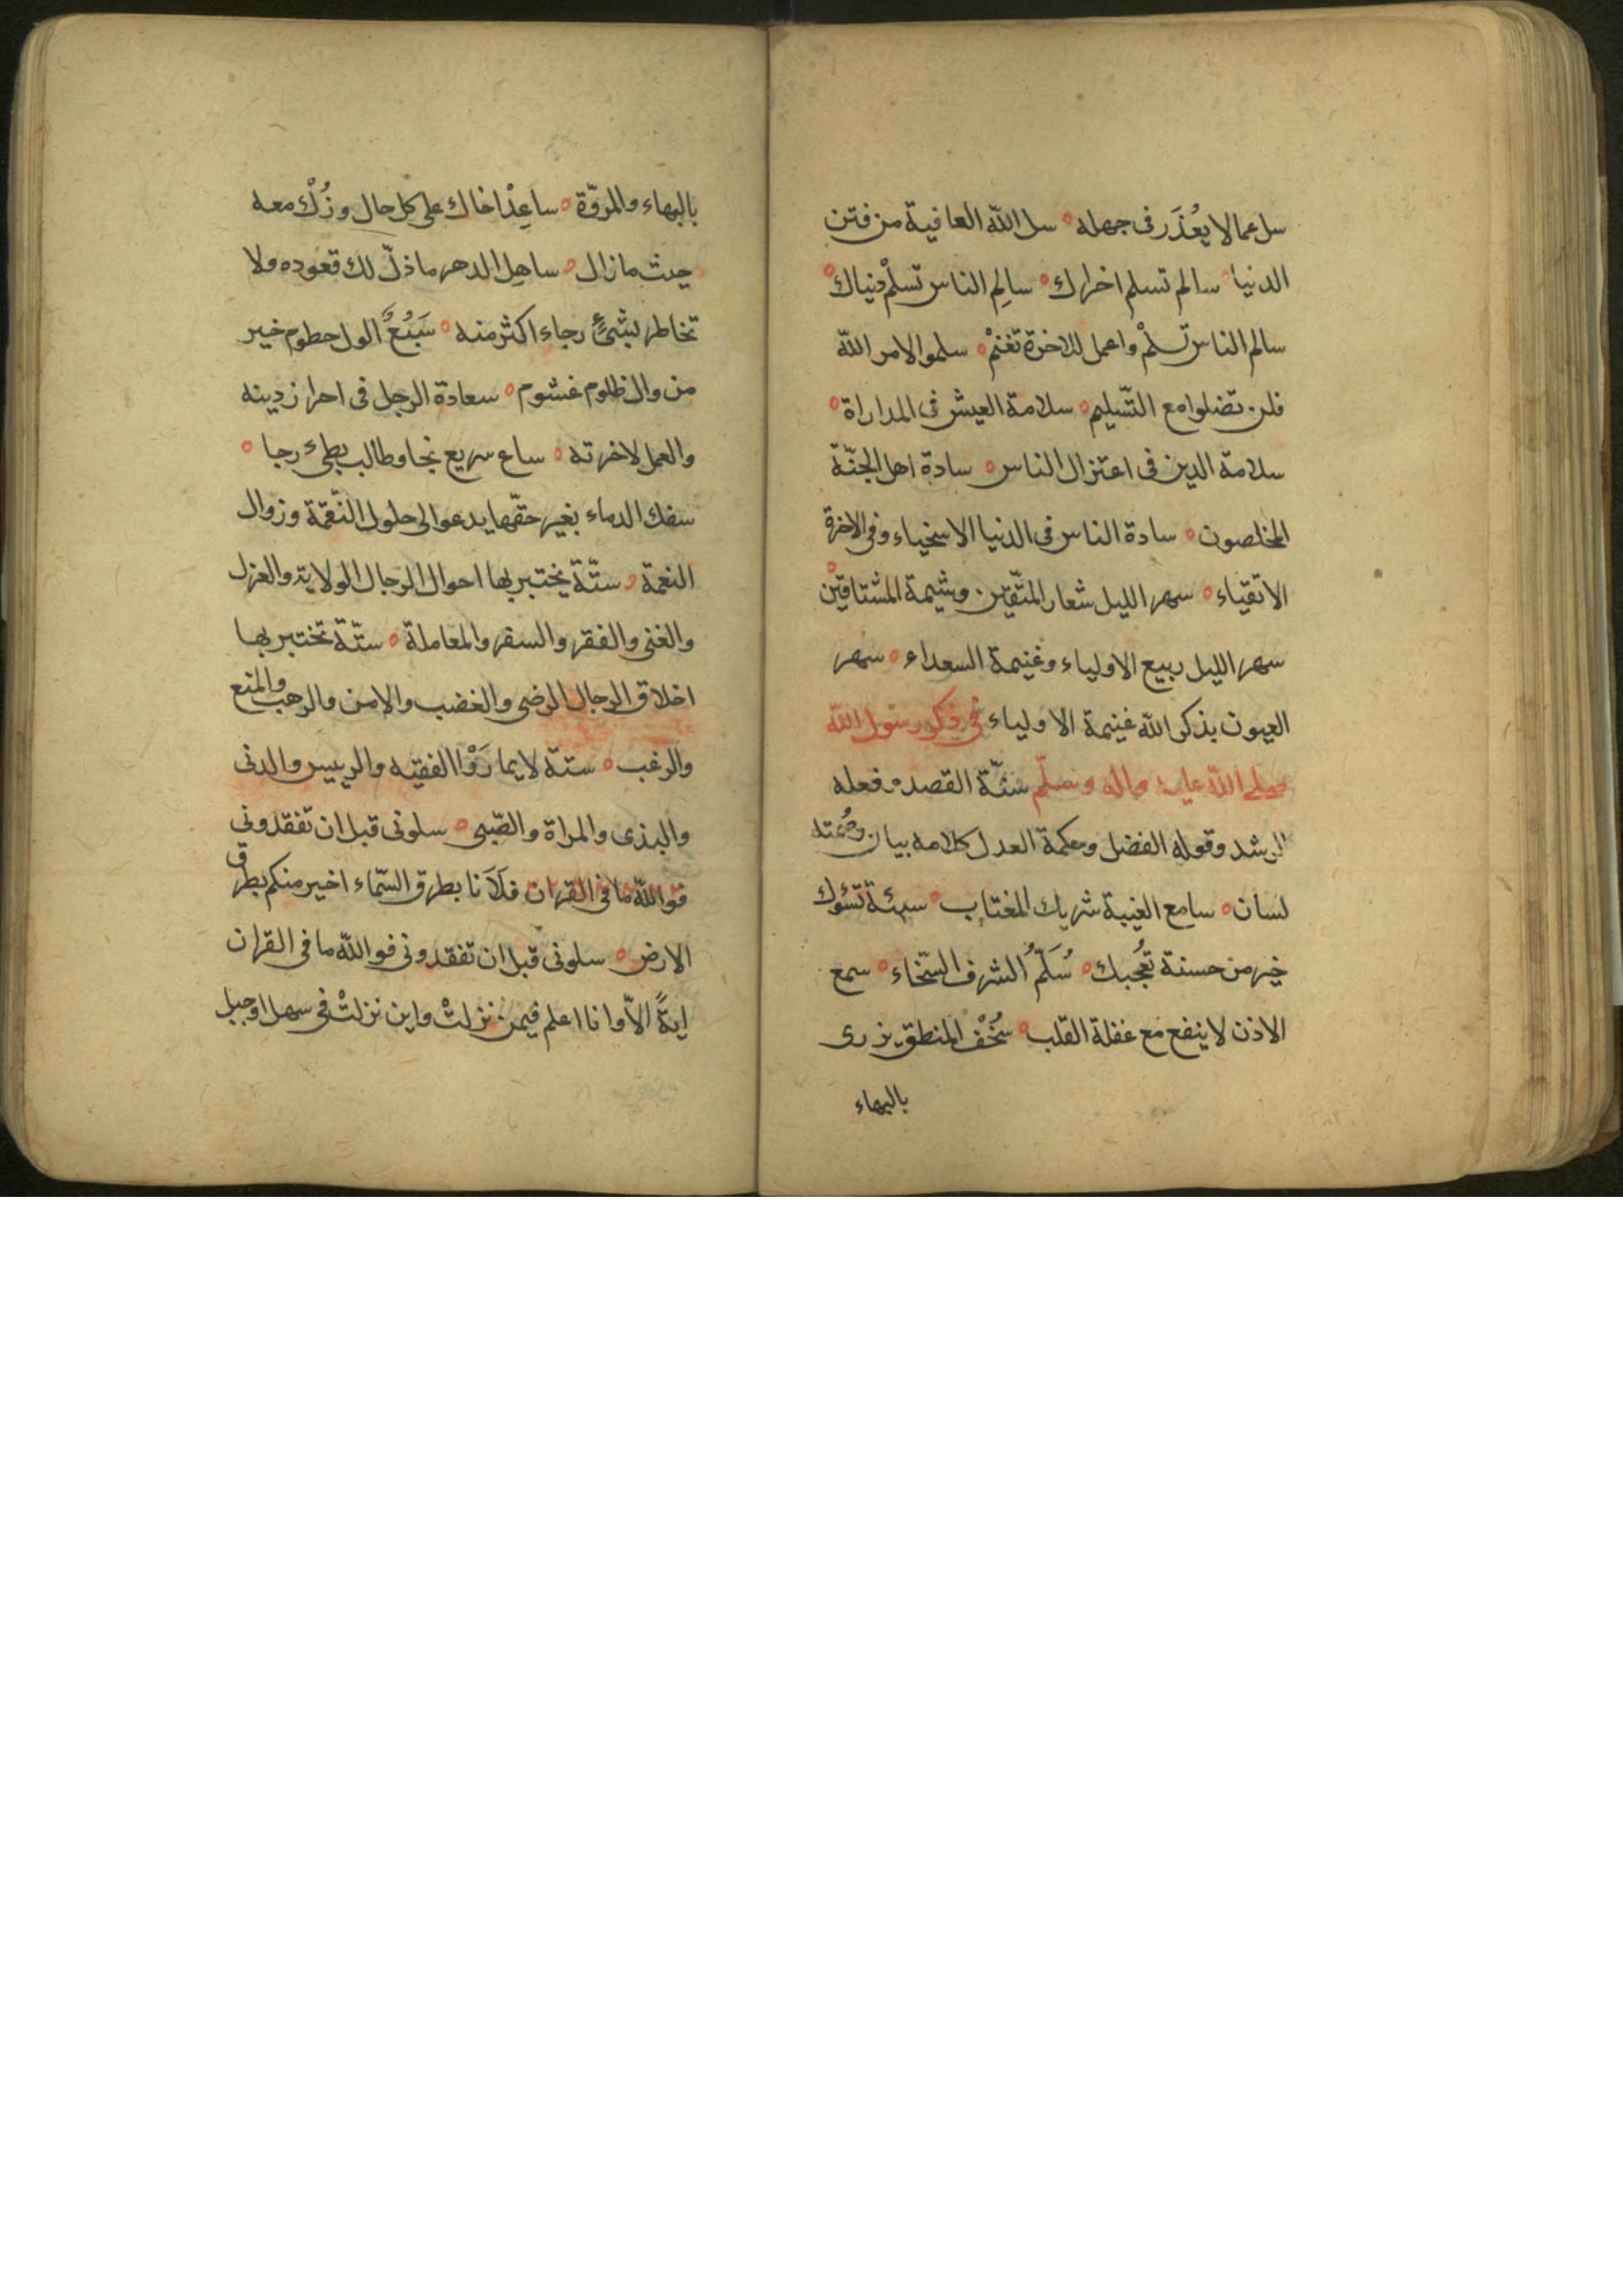 سل عما لا يُعْذَر فى جهله ه سل الله العافية من فتن
الدنيا ه سالم تسلم اخراك ه سالِم الناس تسلمْ دنياك ه
سالم الناس تسلمْ واعمل للاخرة تغنمْ ه سلموا لامر الله
فلن تضلوا مع التّسليم ه سلامة العيش فى المداراة ه
سلامة الدين فى اعتزال الناس ه سادة اهل الجنّة
المخلصون ه سادة الناس فى الدنيا الاسخياء وفى الاخرة
الاتقياء ه سهر الليل شعار المتّقين وشيمة المشتاقين ه
سهر الليل ربيع الاولياء وغنيمة السعداء ه سهر
العيون بذكر الله غنيمة الاولياء فى ذكر رسول الله
صلى الله عليه واله وسلّم سنّة القصد وفعله
الرشد وقوله الفضل وحكمة العدل كلامه بيان وصمته
لسان ه سامع الغيبة شريك المغتاب ه سيئة تسؤك
خير من حسنة تُعجبك ه سُلّمُ الشرف السّخاء ه سمع
الاذن لا ينفع مع غفلة القلب ه سُخْف المنطق يزرى
بالبهاء
بالبهاء والمروّة ه ساعِدْ اخاك على كل حال وزُلْ معه
حيث ما زال ه ساهِل الدهر ما ذلّ لك قعوده ولا
تخاطر بشئٍ رجاء اكثر منه ه سَبُعٌ اكول حطوم خير
من وال ظلوم غشوم ه سعادة الرجل فى احراز دينه
والعمل لاخرته ه ساع سريع نجا وطالب بطئ رجا ه
سفك الدماء بغير حقّها يدعو الى حلول النّقمة وزوال
النعمة ه ستّة يختبر بها احوال الرجال الولاية والعزل
والغنى والفقر والسفر والمعاملة ه ستّة تختبر بها
اخلاق الرجال الرضى والغضب والامن والرهب والمنع
والرغب ه ستة لا يمارَوْا الفقيه والرييس والدنى
والبذى والمراة والصّبى ه سلونى قبل ان تفقدونى
فوالله ما فى القران فلَاَنا بطرق السّماء اخبر منكم بطرق
الارض ه سلونى قبل ان تفقدونى فوالله ما فى القران
ايةً الاّ وانا اعلم فيمن نزلتْ واين نزلتْ فى سهل او جبل